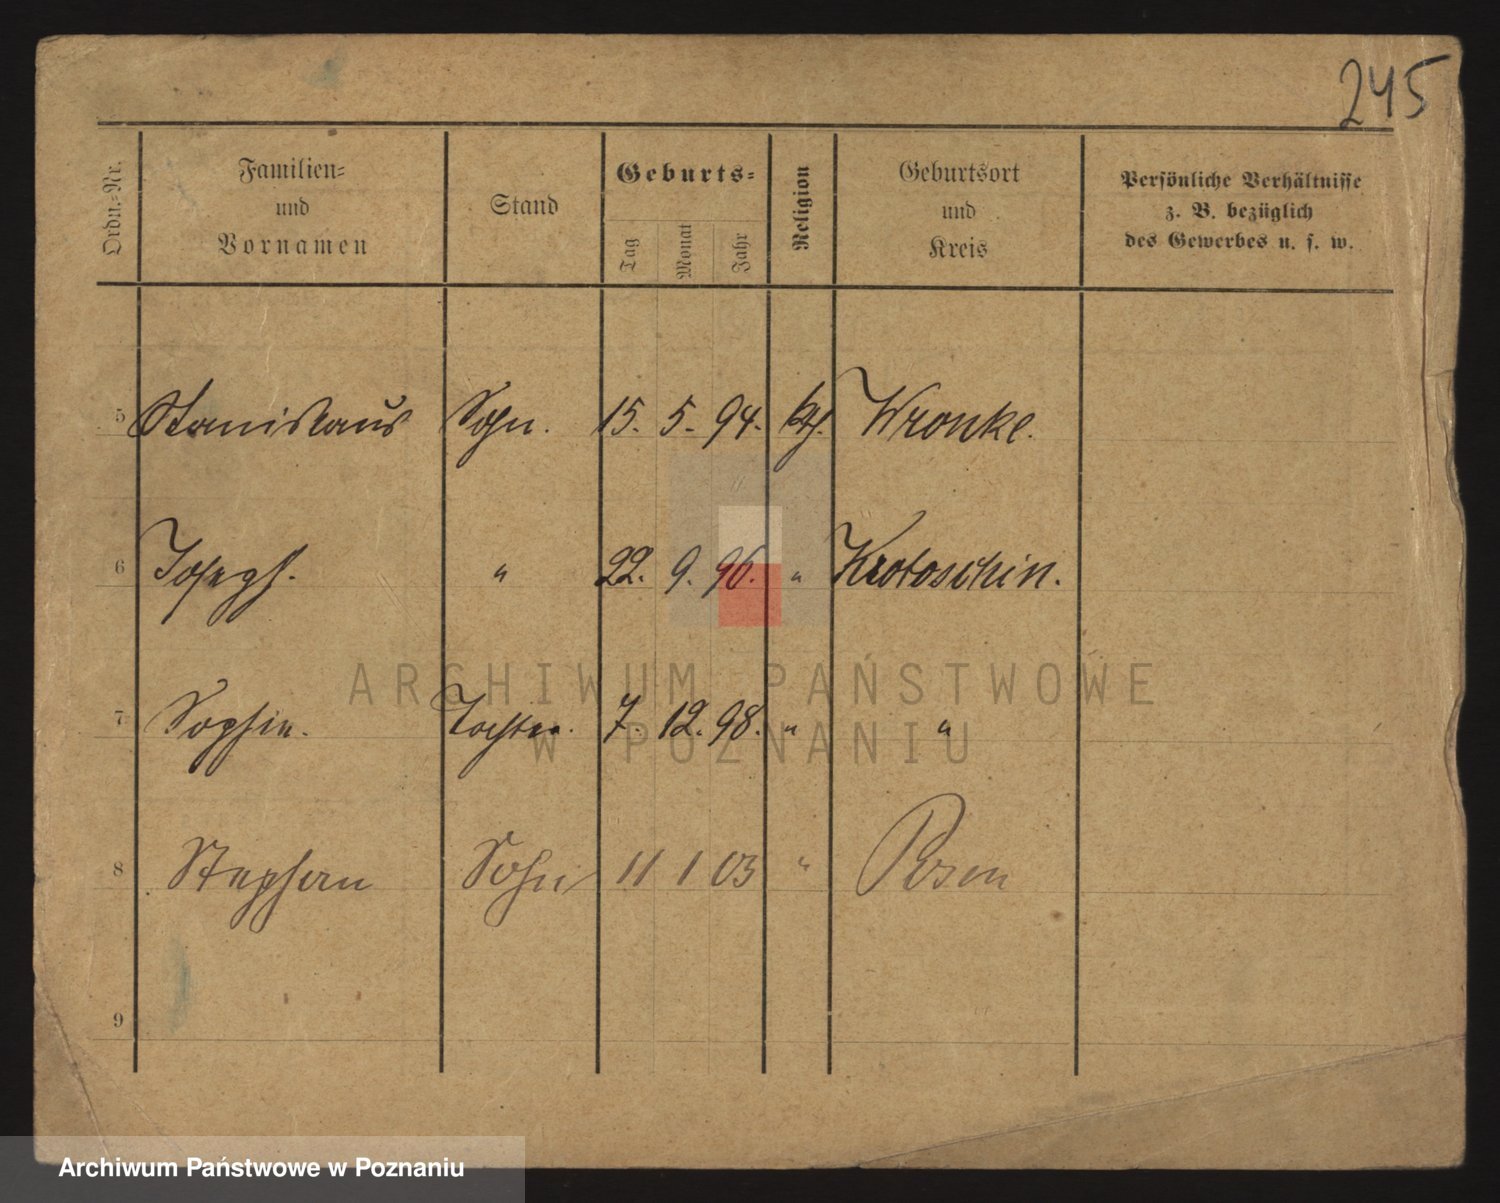 245
Ordn.-Nr.
Familien-
und
Vornamen
Stand
Geburts-
Tag
Monat
Jahr
Religion
Geburtsort
und
Kreis
Persönliche Verhältnisse
z. B. bezüglich
des Gewerbes u. s. w.
5 Stanislaus Sohn. 15. 5. 94. kth. Wronke.
6 Joseph. " 22. 9. 96. " Krotoschin.
7 Sophie. Tochter. 7. 12. 98. " "
8 Stephan Sohn 11 1 03 " Posen
9
ARCHIWUM PAŃSTWOWE
W POZNANIU
Archiwum Państwowe w Poznaniu